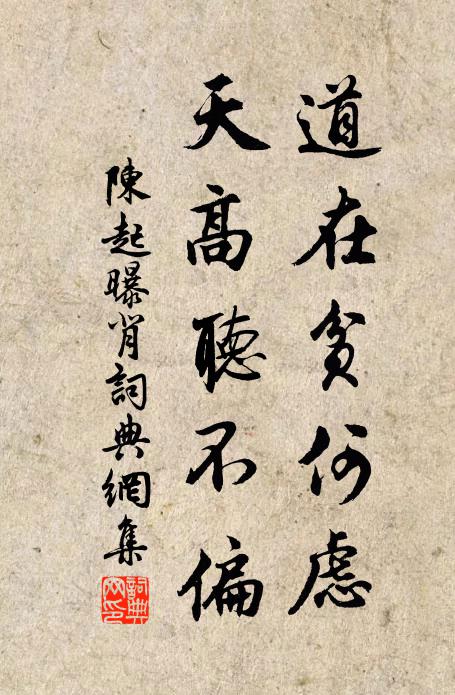 道在貧何慮
天高聽不偏
陳起曝背詞典網集
詞典網印